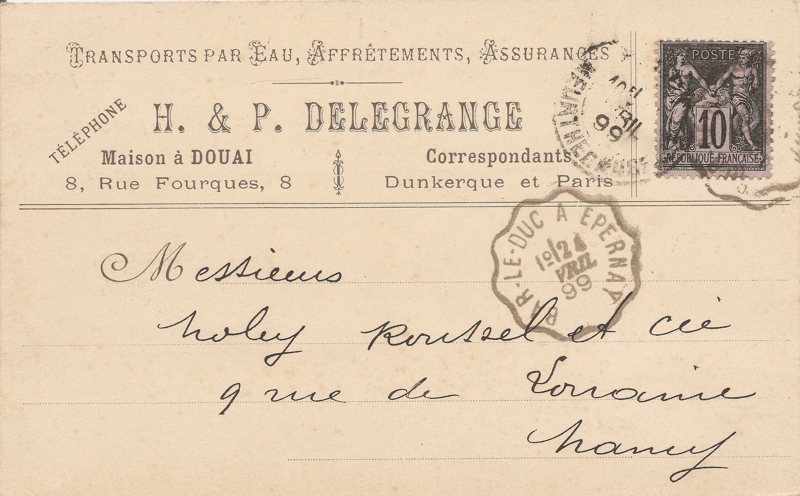 TRANSPORTS PAR EAU, AFFRÊTEMENTS, ASSURANCES
TÉLÉPHONE
H. & P. DELEGRANGE
Maison à DOUAI
8, Rue Fourques, 8
Correspondants
Dunkerque et Paris
POSTE
10
RÉPUBLIQUE FRANÇAISE
99
BAR-LE-DUC A EPERNAY
24
AVRIL
99
Messieurs
Roussel et Cie
9 rue de Lorraine
Nancy